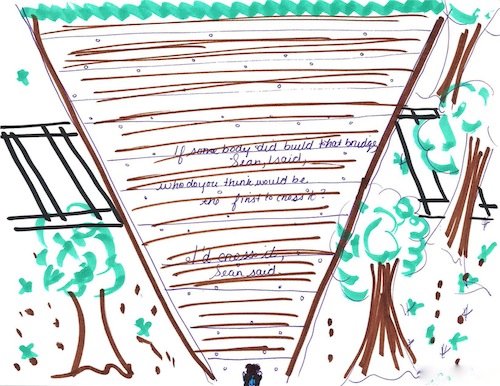 If some body did build that bridge,
Sean, I said,
who do you think would be
the first to cross it?
I'd cross it,
Sean said.